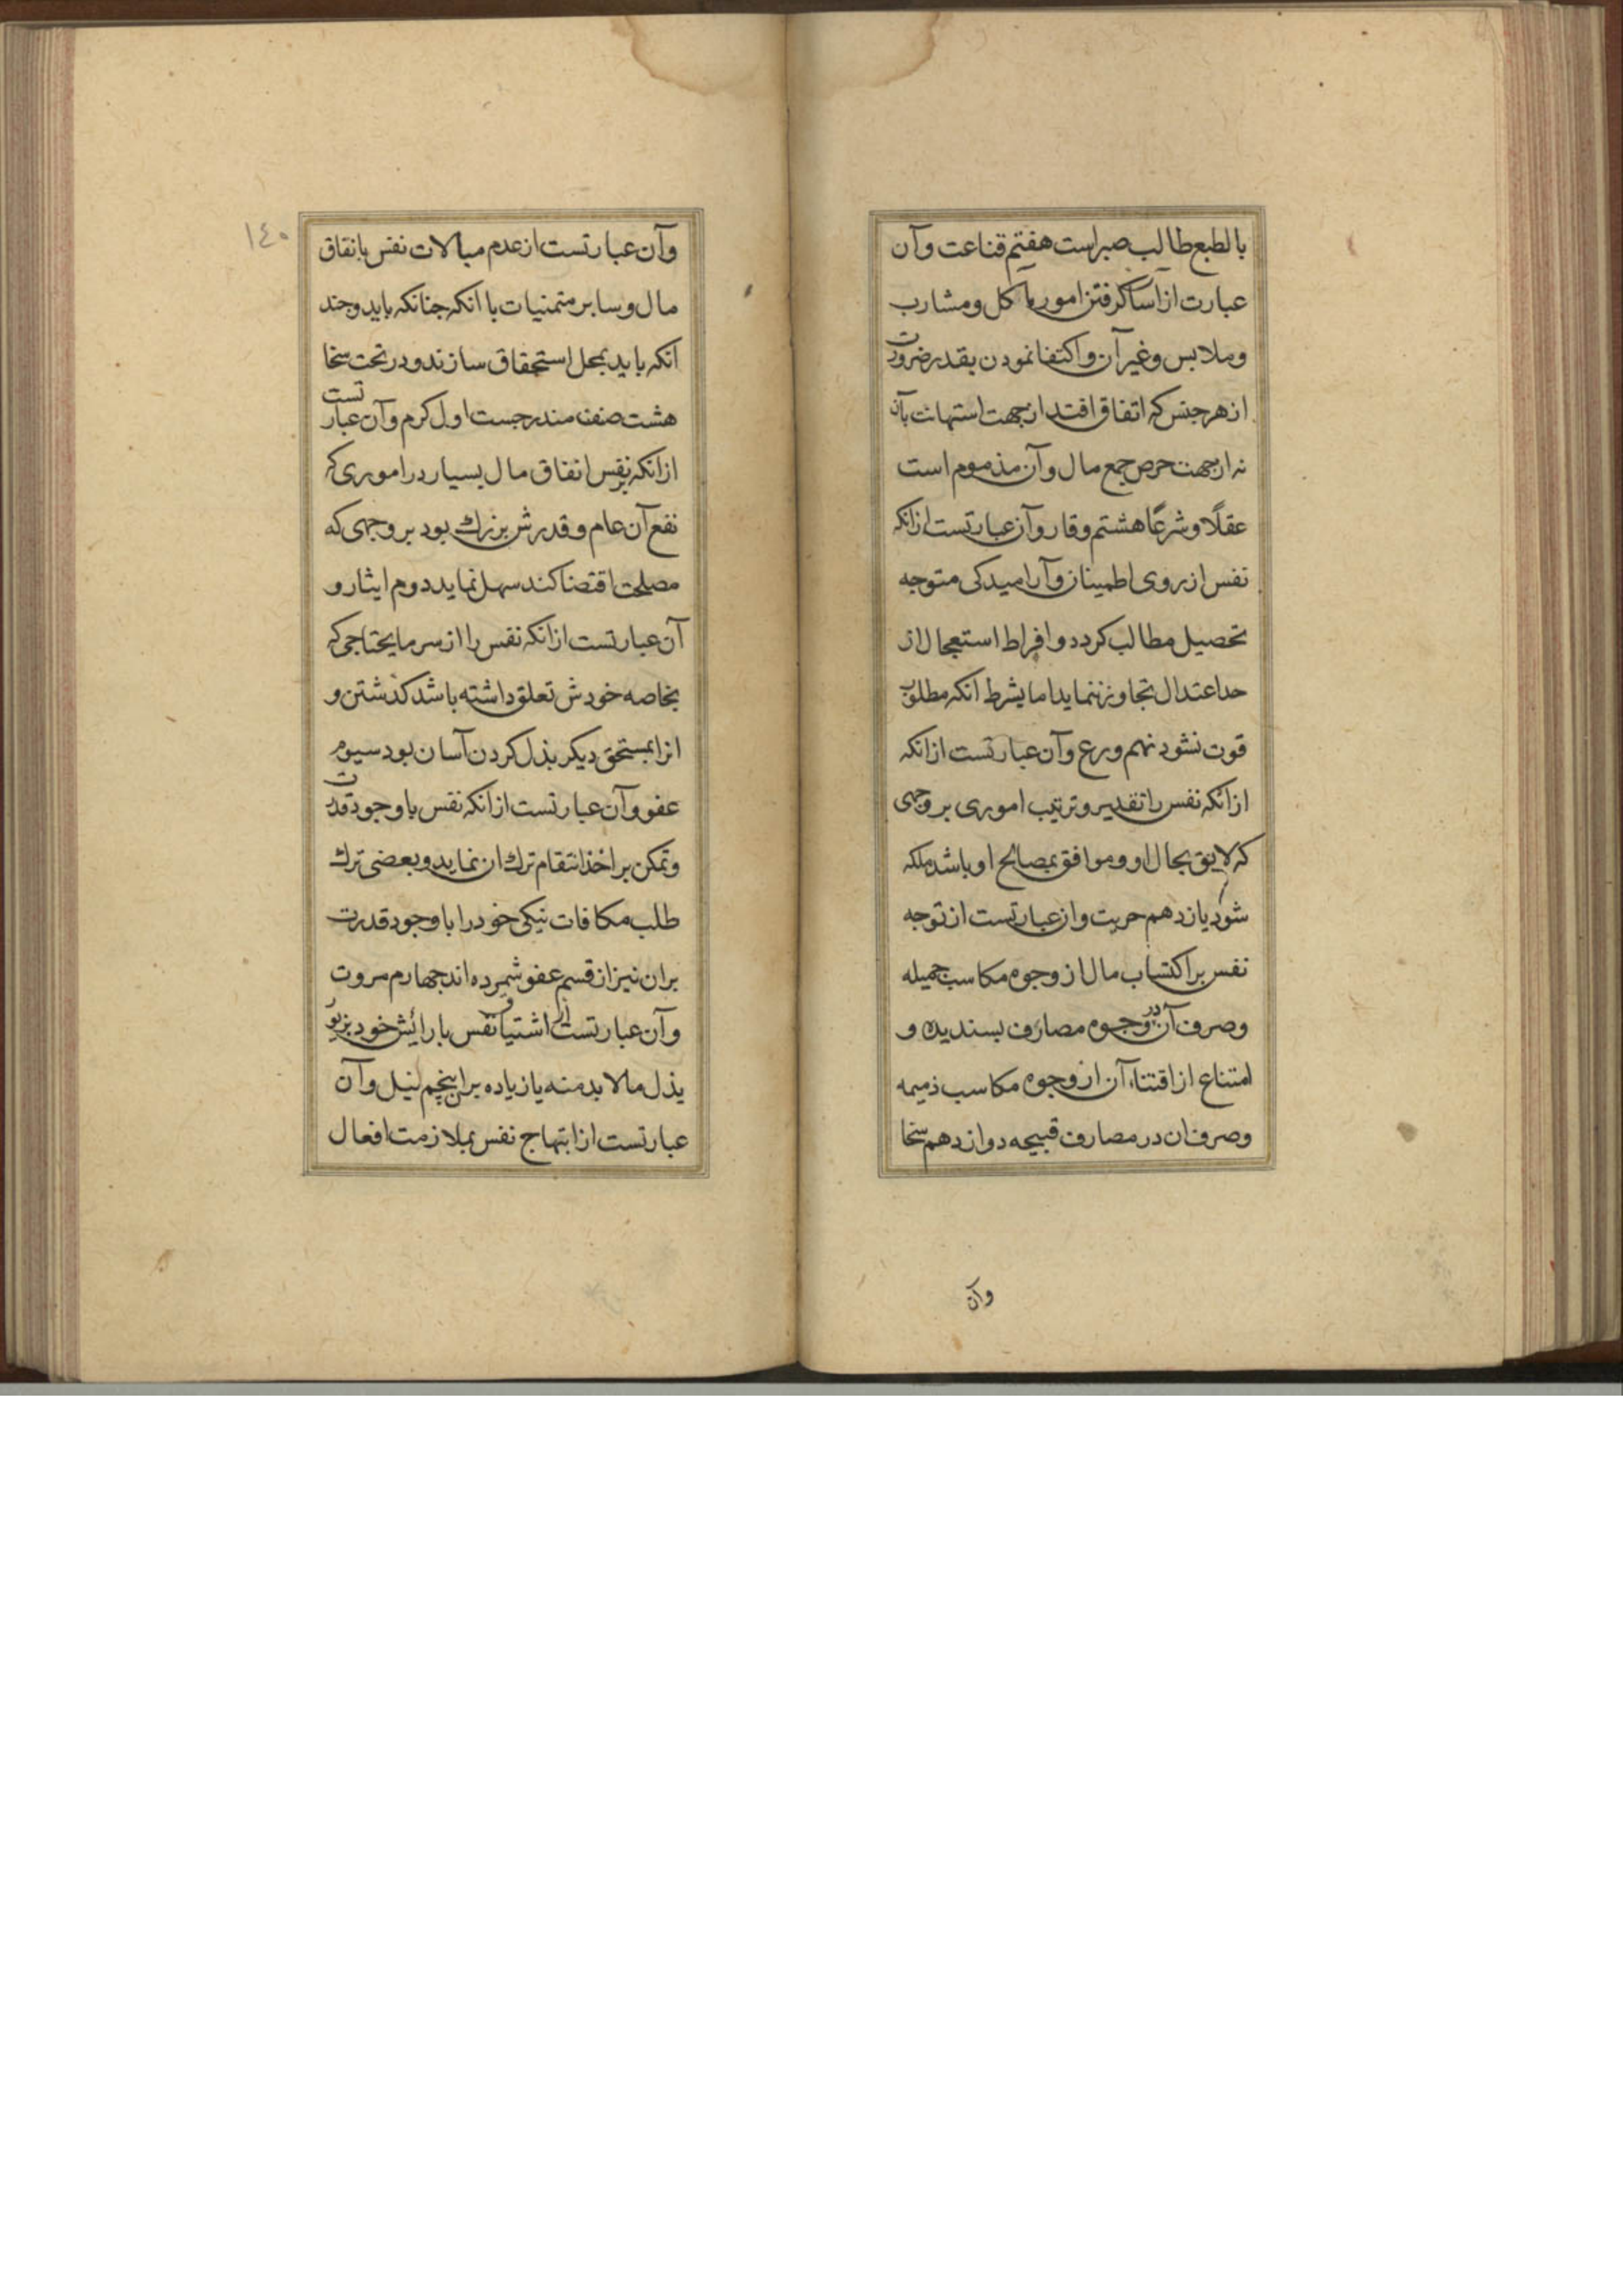 بالطبع طالب صبر است هفتم قناعت و آن
عبارت از آسا کرفتن امور مآکل و مشارب
و ملابس و غیر آن و اکتفا نمودن بقدر ضرورت
از هر جنس که اتفاق افتد از جهت استهانت بآن
نه از جهت حرص جمع مال و آن مذموم است
عقلًا و شرعًا هشتم وقار و آن عبارتست از انکه
نفس از روی اطمینان و آرامیدکی متوجه
تحصیل مطالب کردد و افراط استعجال از
حد اعتدال تجاوز ننماید اما بشرط انکه مطلوب
فوت نشود نهم ورع و آن عبارتست از انکه
از انکه نفس را تقدیر و ترتیب اموری بر وجهی
که لایق بحال او و موافق بمصالح او باشد ملکه
شود یازدهم حریت و ان عبارتست از توجه
نفس بر اکتساب مال از وجوه مکاسب جمیله
و صرف آن در وجوه مصارف بسندیده و
امتناع از اقتناء آن از وجوه مکاسب ذمیمه
و صرف ان در مصارف قبیحه دوازدهم سخا
وآن
١٤٠
و آن عبارتست از عدم مبالات نفس بانفاق
مال و سایر متمنیات با انکه جنانکه باید و جند
انکه باید بمحل استحقاق سازند و در تحت سخا
هشت صنف مندرجست اول کرم و آن عبارتست
از انکه بر نفس انفاق مال بسیار در اموری که
نفع آن عام و قدرش بزرك بود بر وجهی که
مصلحت اقتضا کند سهل نماید دوم ایثار و
آن عبارتست از انکه نفس را از سر مایحتاجی که
بخاصه خودش تعلق داشته باشد کذشتن و
انرا بمستحق دیکر بذل کردن آسان بود سیوم
عفو و آن عبارتست از انکه نفس با وجود قدرت
و تمکن بر اخذ انتقام ترك ان نماید و بعضی ترك
طلب مکافات نیکی خود را با وجود قدرت
بران نیز از قسم عفو شمرده اند جهارم مروت
و آن عبارتست از اشتیاق نفس بارائش خود بزیور
بذل مالابد منه یا زیاده بران پنجم نیل و آن
عبارتست از ابتهاج نفس بملازمت افعال